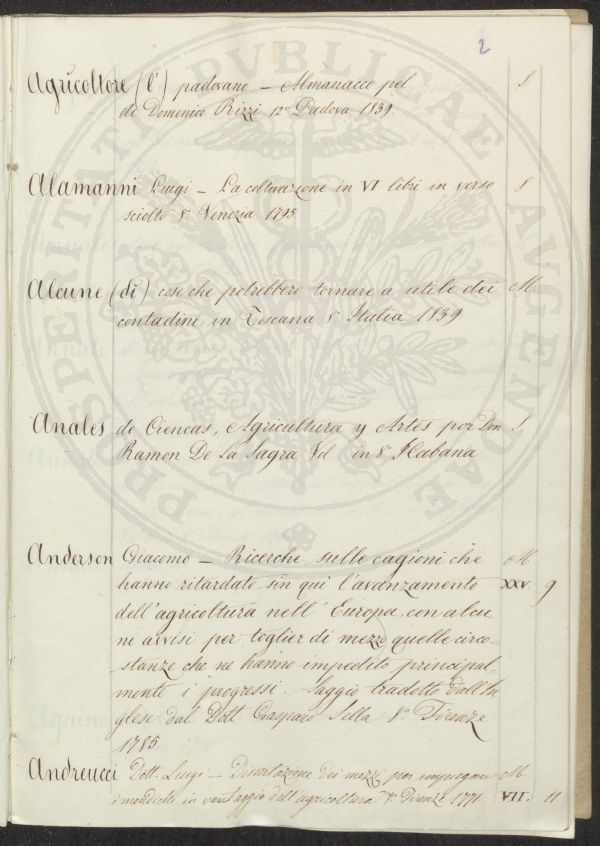 2
Agricoltore (l') padovano – Almanacco pel S
di Domenico Rizzi 12° Padova 1839
Alamanni Luigi – La coltivazione in VI libri in verso S
sciolto 8° Venezia 1795
Alcune (di) cose che potrebbero tornare a utile dei M
contadini in Toscana 8° Italia 1839
Anales de Ciencas, Agricultura y Artes por Don S
Ramon De La Sagra Vol in 8° Habana
Anderson Giacomo – Ricerche sulle cagioni che M
hanno ritardato sin quì l'avanzamento XXV 9
dell'agricoltura nell'Europa, con alcu-
ni avvisi per toglier di mezzo quelle circo-
stanze che ne hanno impedito principal-
mente i progressi. Saggio tradotto dall'In
glese dal Dott Gasparo Sella 8° Firenze
1785
Andreucci Dott. Luigi – Dissertazione dei mezzi per impiegare M.
i mendichi in vantaggio dell'agricoltura 8° Firenze 1771 VII. 11
PROSPERITATI PVBLICAE AVGENDAE